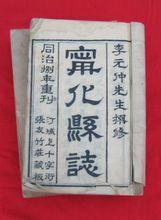 李元仲先生撰修
甯化縣誌
同治捌年重刊
汀城上十字街
張友竹莊藏板